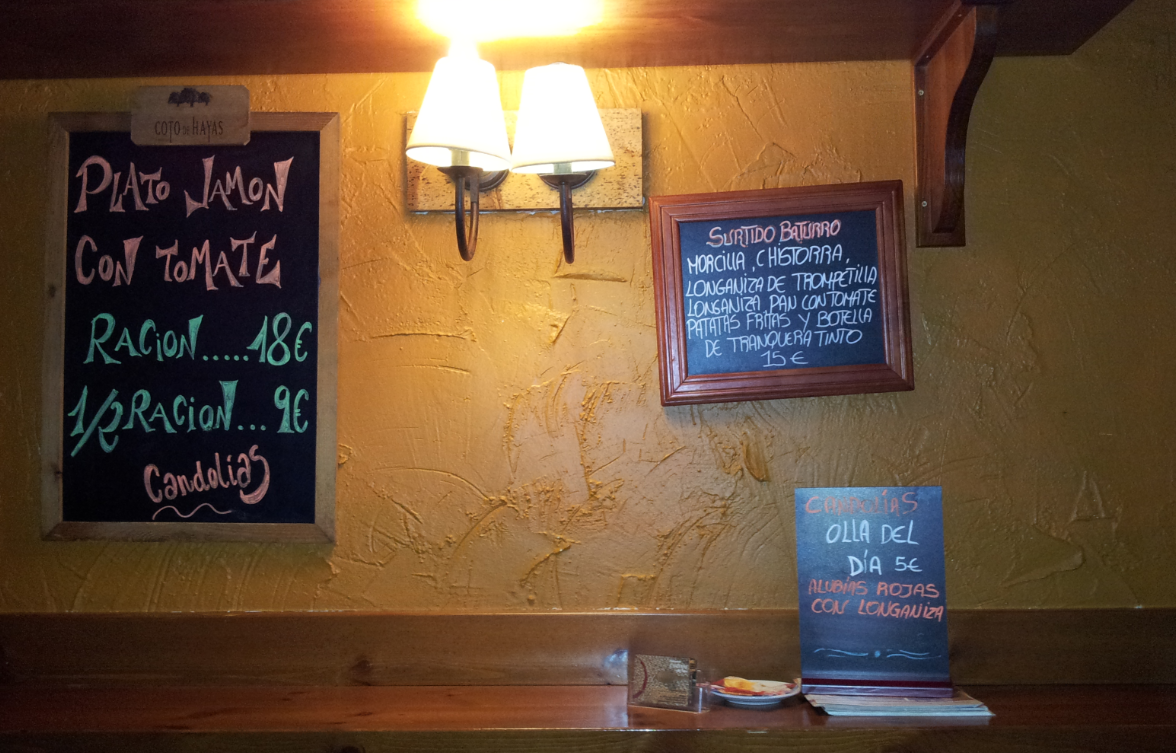 COTO DE HAYAS
PLATO JAMON
CON TOMATE
RACION.....18€
1/2 RACION... 9€
Candolías
SURTIDO BATURRO
MORCILLA, CHISTORRA,
LONGANIZA DE TROMPETILLA
LONGANIZA PAN CON TOMATE
PATATAS FRITAS Y BOTELLA
DE TRANQUERA TINTO
15 €
CANDOLÍAS
OLLA DEL
DÍA 5€
ALUBIAS ROJAS
CON LONGANIZA